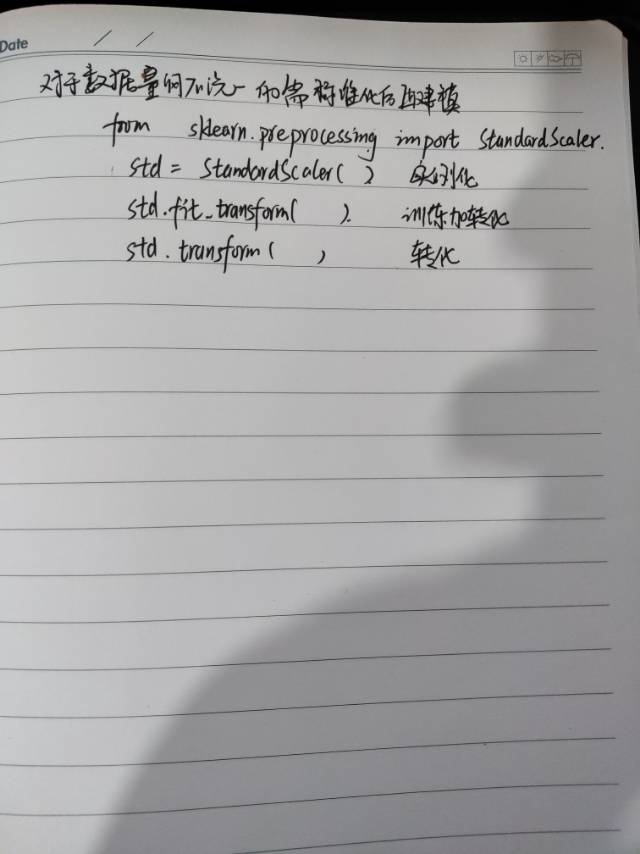 Date / /
对于数据量纲不统一的需标准化后再建模
from sklearn.preprocessing import StandardScaler.
std = StandardScaler( ) 实例化
std.fit_transform( ). 训练加转化
std.transform( ) 转化